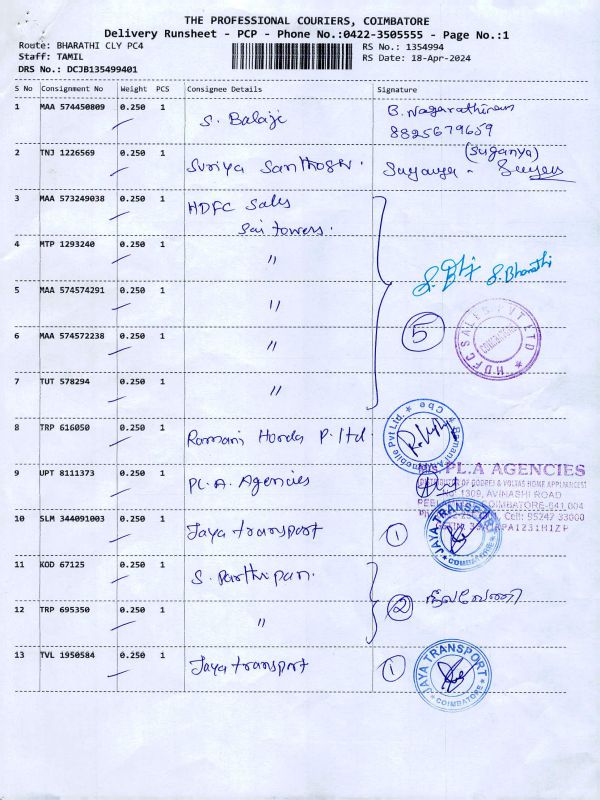 THE PROFESSIONAL COURIERS, COIMBATORE
Delivery Runsheet - PCP - Phone No.:0422-3505555 - Page No.:1
Route: BHARATHI CLY PC4
RS No.: 1354994
Staff: TAMIL
RS Date: 18-Apr-2024
DRS No.: DCJB135499401
S No Consignment No Weight PCS Consignee Details Signature
1 MAA 574450809 0.250 1 S. Balaji B. Nagarathinam
8825679659
2 TNJ 1226569 0.250 1 Suriya Santhosh. (Suganya)
3 MAA 573249038 0.250 1 HDFC Sales
Sai towers.
4 MTP 1293240 0.250 1 "
S. Bharathi
5 MAA 574574291 0.250 1 "
5
HDFC SALES PVT LTD
COIMBATORE
6 MAA 574572238 0.250 1 "
7 TUT 578294 0.250 1 "
8 TRP 616050 0.250 1 Ramani Honda P. ltd.
Ramani Automobile Pvt Ltd. * Cbe *
9 UPT 8111373 0.250 1 PL. A. Agencies
PL.A AGENCIES
DISTRIBUTOR OF GODREJ & VOLTAS HOME APPLIANCES
No. 1309, AVINASHI ROAD
COIMBATORE-641 004
Cell: 95247 33000
10 SLM 344091003 0.250 1 Jaya transport 1
JAYA TRANSPORT
* COIMBATORE *
11 KOD 67125 0.250 1 S. Parthipan.
2 நீலவேணி
12 TRP 695350 0.250 1 "
13 TVL 1950584 0.250 1 Jaya transport 1
JAYA TRANSPORT
* COIMBATORE *